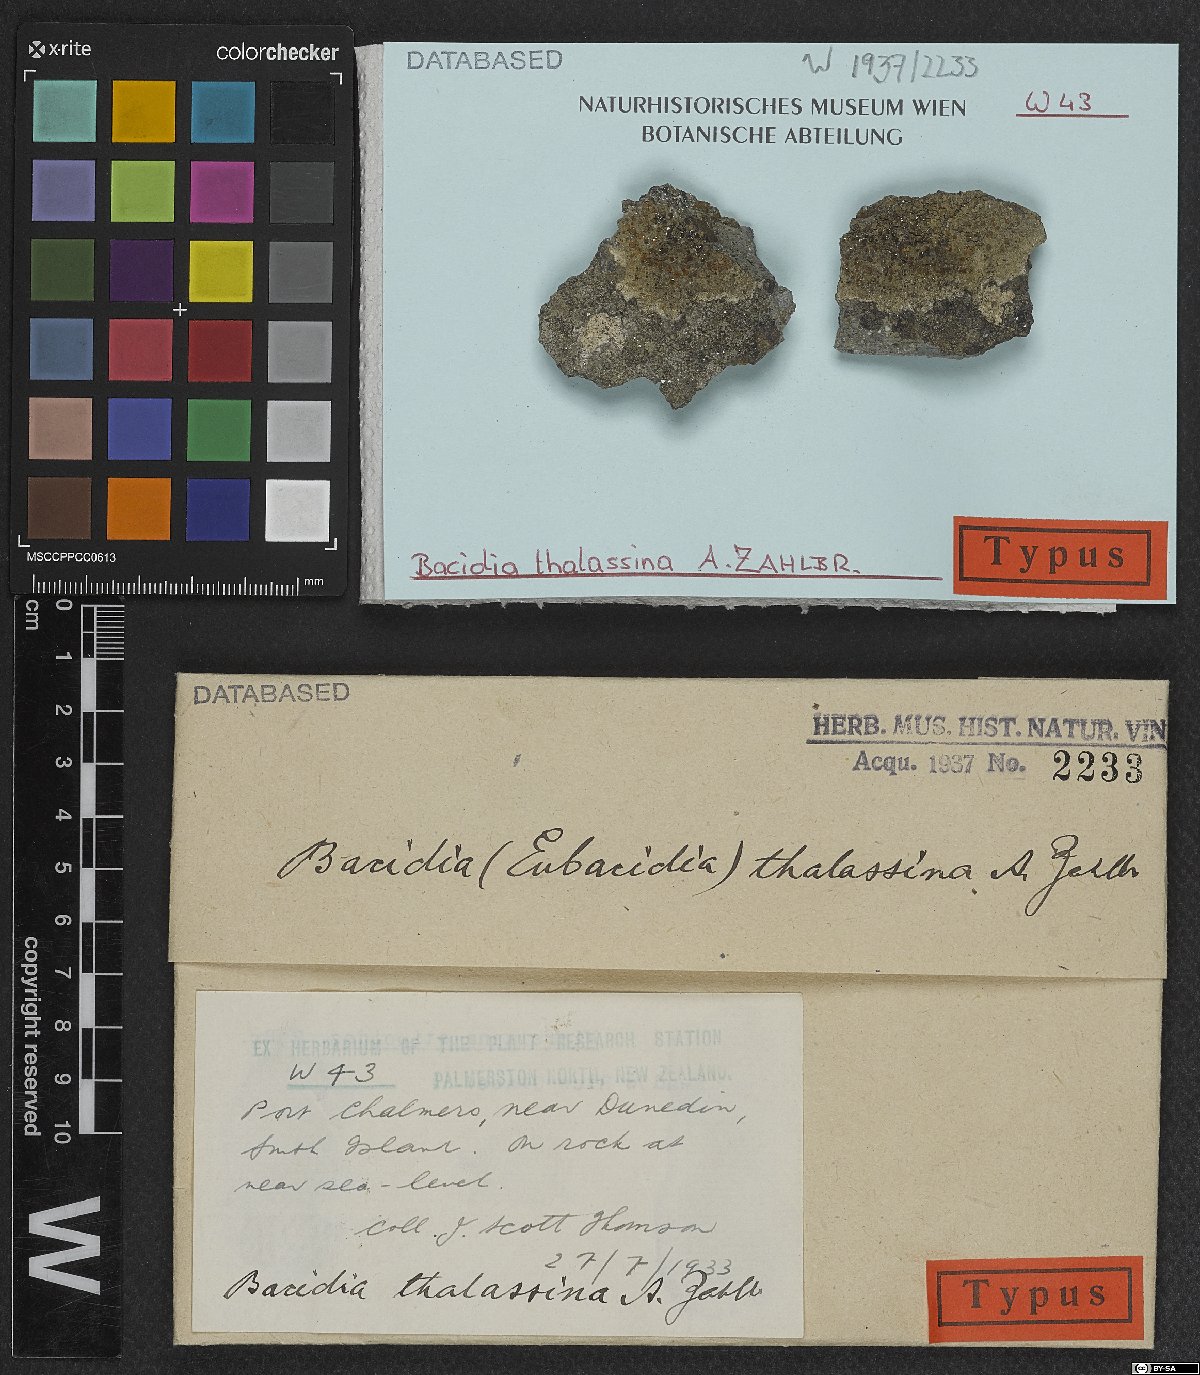 x-rite
colorchecker
MSCCPPCC0613
mm
DATABASED
W 1937/2233
NATURHISTORISCHES MUSEUM WIEN
BOTANISCHE ABTEILUNG
W 43
Bacidia thalassina A. ZAHLBR.
Typus
cm
0 1 2 3 4 5 6 7 8 9 10
copyright reserved
W
DATABASED
HERB. MUS. HIST. NATUR. VIN
Acqu. 1937 No. 2233
Bacidia (Eubacidia) thalassina A. Zahlbr
EX HERBARIUM OF THE PLANT RESEARCH STATION
PALMERSTON NORTH, NEW ZEALAND.
W 43
Port Chalmers, near Dunedin,
South Island. On rock at
near sea-level.
Coll. J. Scott Thomson
27/7/1933
Bacidia thalassina A. Zahlbr
Typus
cc BY-SA